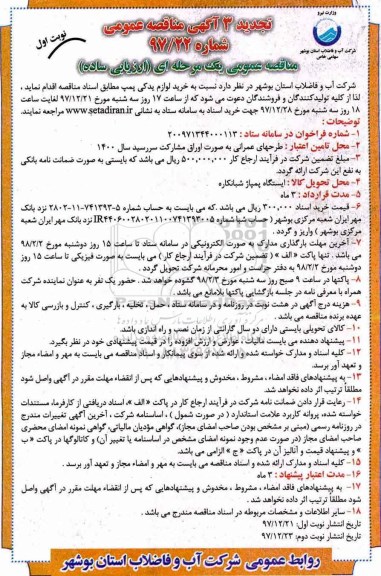 وزارت نیرو
شرکت آب و فاضلاب استان بوشهر
سهامی خاص
نوبت اول
تجدید ۳ آگهی مناقصه عمومی
شماره ۹۷/۲۲
مناقصه عمومی یک مرحله ای (ارزیابی ساده)
شرکت آب و فاضلاب استان بوشهر در نظر دارد نسبت به خرید لوازم یدکی پمپ مطابق اسناد مناقصه اقدام نماید ،
لذا از کلیه تولیدکنندگان و فروشندگان دعوت می شود که از ساعت ۱۷ روز سه شنبه مورخ ۹۷/۱۲/۲۱ لغایت ساعت
۱۸ روز سه شنبه مورخ ۹۷/۱۲/۲۸ جهت خرید اسناد به سامانه ستاد به نشانی www.setadiran.ir مراجعه نمایند.
توضیحات :
۱- شماره فراخوان در سامانه ستاد : ۲۰۰۹۷۱۳۴۴۰۰۰۱۱۳
۲- محل تامین اعتبار : طرحهای عمرانی به صورت اوراق مشارکت سررسید سال ۱۴۰۰
۳- مبلغ تضمین شرکت در فرآیند ارجاع کار ۵۰۰,۰۰۰,۰۰۰ ریال می باشد که بایستی به صورت ضمانت نامه بانکی
به نفع این شرکت ارائه گردد.
۴- محل تحویل کالا : ایستگاه پمپاژ شبانکاره
۵- مدت قرارداد : ۳ ماه
۶- قیمت خرید اسناد ۳۰۰,۰۰۰ ریال می باشد .که می بایست به حساب شماره ۵-۷۴۱۳۹۳-۱۱-۲۸۰۲ نزد بانک
مهر ایران شعبه مرکزی بوشهر ( حساب شبا شماره IR۴۴۰۶۰۰۲۸۰۲۰۱۱۰۰۷۴۱۳۹۳۰۰۵ نزد بانک مهر ایران شعبه
مرکزی بوشهر ) واریز و گردد .
۷- آخرین مهلت بارگذاری مدارک به صورت الکترونیکی در سامانه ستاد تا ساعت ۱۵ روز دوشنبه مورخ ۹۸/۲/۲
می باشد . تنها پاکت « الف » ( تضمین شرکت در فرآیند ارجاع کار ) می بایست به صورت فیزیکی تا ساعت ۱۵ روز
دوشنبه مورخ ۹۸/۲/۲ به دفتر حراست و امور محرمانه شرکت تحویل گردد .
۸- پاکتها در ساعت ۹ صبح روز سه شنبه مورخ ۹۸/۲/۳ گشوده خواهد شد . حضور یک نفر به عنوان نماینده شرکت
همراه با معرفی نامه در جلسه بازگشایی پاکتها بلامانع می باشد .
۹- هزینه درج آگهی در هشت نوبت در روزنامه و در سامانه ستاد ، حمل ، تخلیه ، بارگیری ، کنترل و بازرسی کالا به
عهده برنده مناقصه می باشد .
۱۰- کالای تحویلی بایستی دارای دو سال گارانتی از زمان نصب و راه اندازی باشد.
۱۱- پیشنهاد دهنده می بایست مالیات ، عوارض و ارزش افزوده را در قیمت پیشنهادی خود در نظر بگیرد.
۱۲- کلیه اسناد و مدارک خواسته شده و ارائه شده از سوی پیمانکار و اسناد مناقصه می بایست به مهر و امضاء مجاز
و تعهد آور برسد.
۱۳- به پیشنهادهای فاقد امضاء ، مشروط ، مخدوش و پیشنهادهایی که پس از انقضاء مهلت مقرر در آگهی واصل شود
مطلقا ترتیب اثر داده نخواهد شد.
۱۴- رعایت قرار دادن ضمانت نامه شرکت در فرآیند ارجاع کار در پاکت « الف »، اسناد دریافتی از کارفرما، مستندات
خواسته شده، پروانه کاربرد علامت استاندارد ( در صورت شمول ) ، اساسنامه شرکت ، آخرین آگهی تغییرات مندرج
در روزنامه رسمی (مبنی بر مشخص بودن صاحب امضاء مجاز)، گواهی مؤدیان مالیاتی، گواهی نمونه امضای محضری
صاحب امضای مجاز (در صورت عدم وجود نمونه امضای مشخص در اساسنامه یا تغییر آن) و کاتالوگها در پاکت « ب
» و پیشنهاد قیمت و آنالیز آن در پاکت « ج » الزامی می باشد.
۱۵- کلیه اسناد و مدارک ارائه شده و اسناد مناقصه می بایست به مهر و امضاء مجاز و تعهد آور برسد .
۱۶- مدت اعتبار پیشنهاد : ۳ ماه
۱۷- به پیشنهادهای فاقد امضاء ، مشروط ، مخدوش و پیشنهادهایی که پس از انقضاء مهلت مقرر در آگهی واصل
شود مطلقا ترتیب اثر داده نخواهد شد.
۱۸- سایر اطلاعات و مشخصات مربوطه در اسناد مناقصه مندرج می باشد .
تاریخ انتشار نوبت اول: ۹۷/۱۲/۲۱
تاریخ انتشار نوبت دوم: ۹۷/۱۲/۲۳
روابط عمومی شرکت آب و فاضلاب استان بوشهر